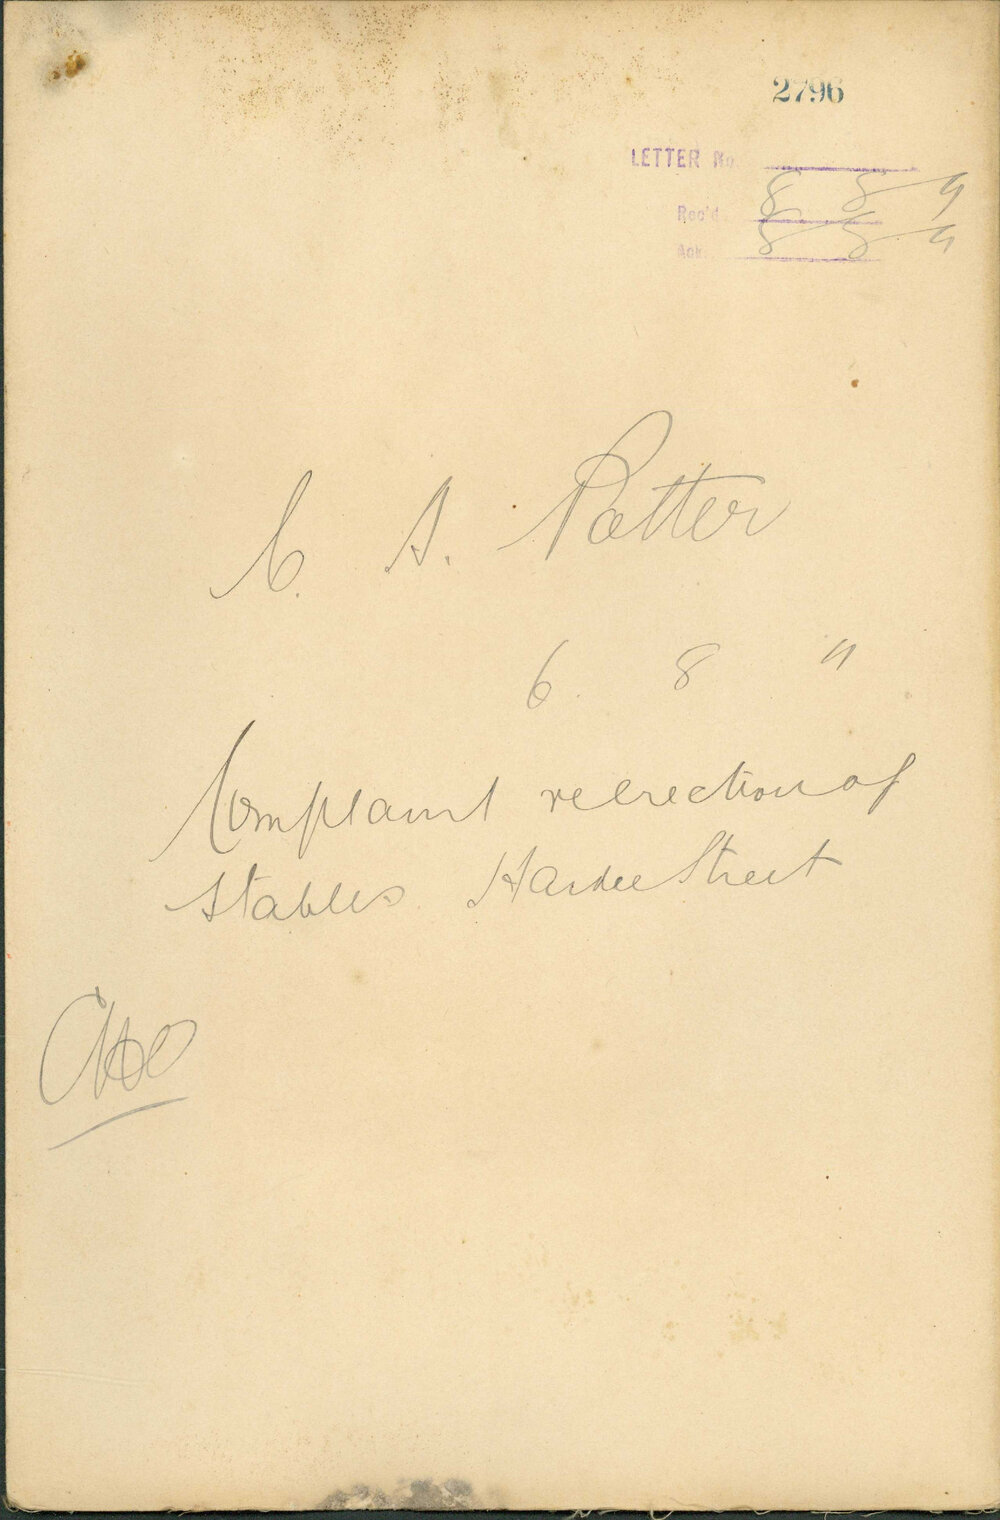 2796
LETTER No.
Rec'd. 8 8 11
Ack. 8 8 11
C. A. Potter
6. 8 11
Complaint re erection of
stables Hardee Street